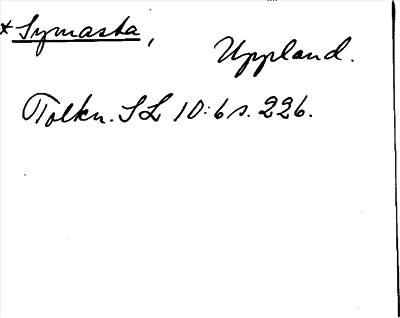 *Symasta,
Uppland.
Tolkn. SL 10:6 s. 226.